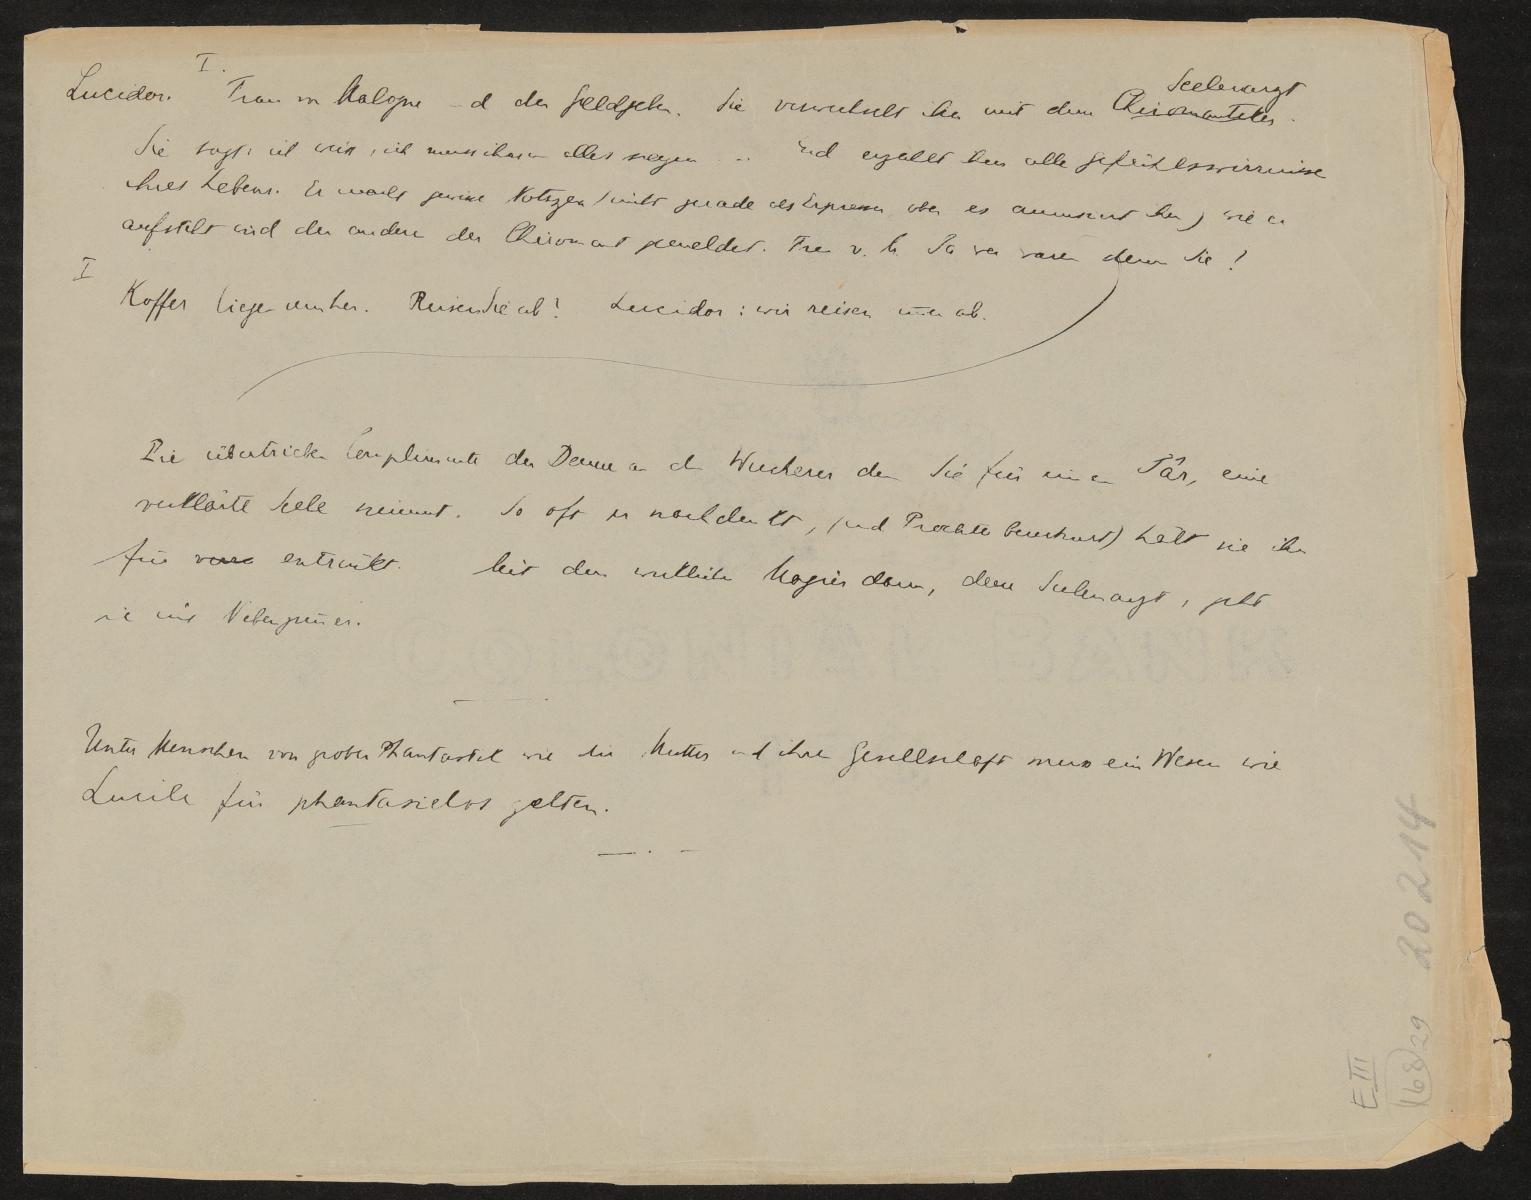 I.
Lucidor. Frau von Malogne und der Geldgeber. Sie verwechselt ihn mit dem Chiromanten. Seelenarzt
Sie sagt: ich weiss, ich muss ihnen alles sagen ... und erzählt ihm alle Gefühlswirrnisse
ihres Lebens. Er macht gewisse Notizen (nicht gerade als Erpresser aber es amusiert ihn) wie er
aufsteht wird der andere der Chiromant gemeldet. Frau v. M. Ja wer waren denn Sie!
I
Koffer liegen umher. Reisen Sie ab? Lucidor: wir reisen immer ab.
Die übertriebenen Complimente der Dame an den Wucherer den Sie für einen Sâr, eine
verklärte Seele nimmt. So oft er nachdenkt, (und Procente berechnet) hält sie ihn
für entrückt. Mit dem wirklichen Magier dann, dem Seelenarzt, geht
sie ins Nebenzimmer.
Unter Menschen von grober Phantastik wie die Mutter und ihre Gesellschaft muss ein Wesen wie
Lucile für phantasielos gelten.
E III
168 29
20214